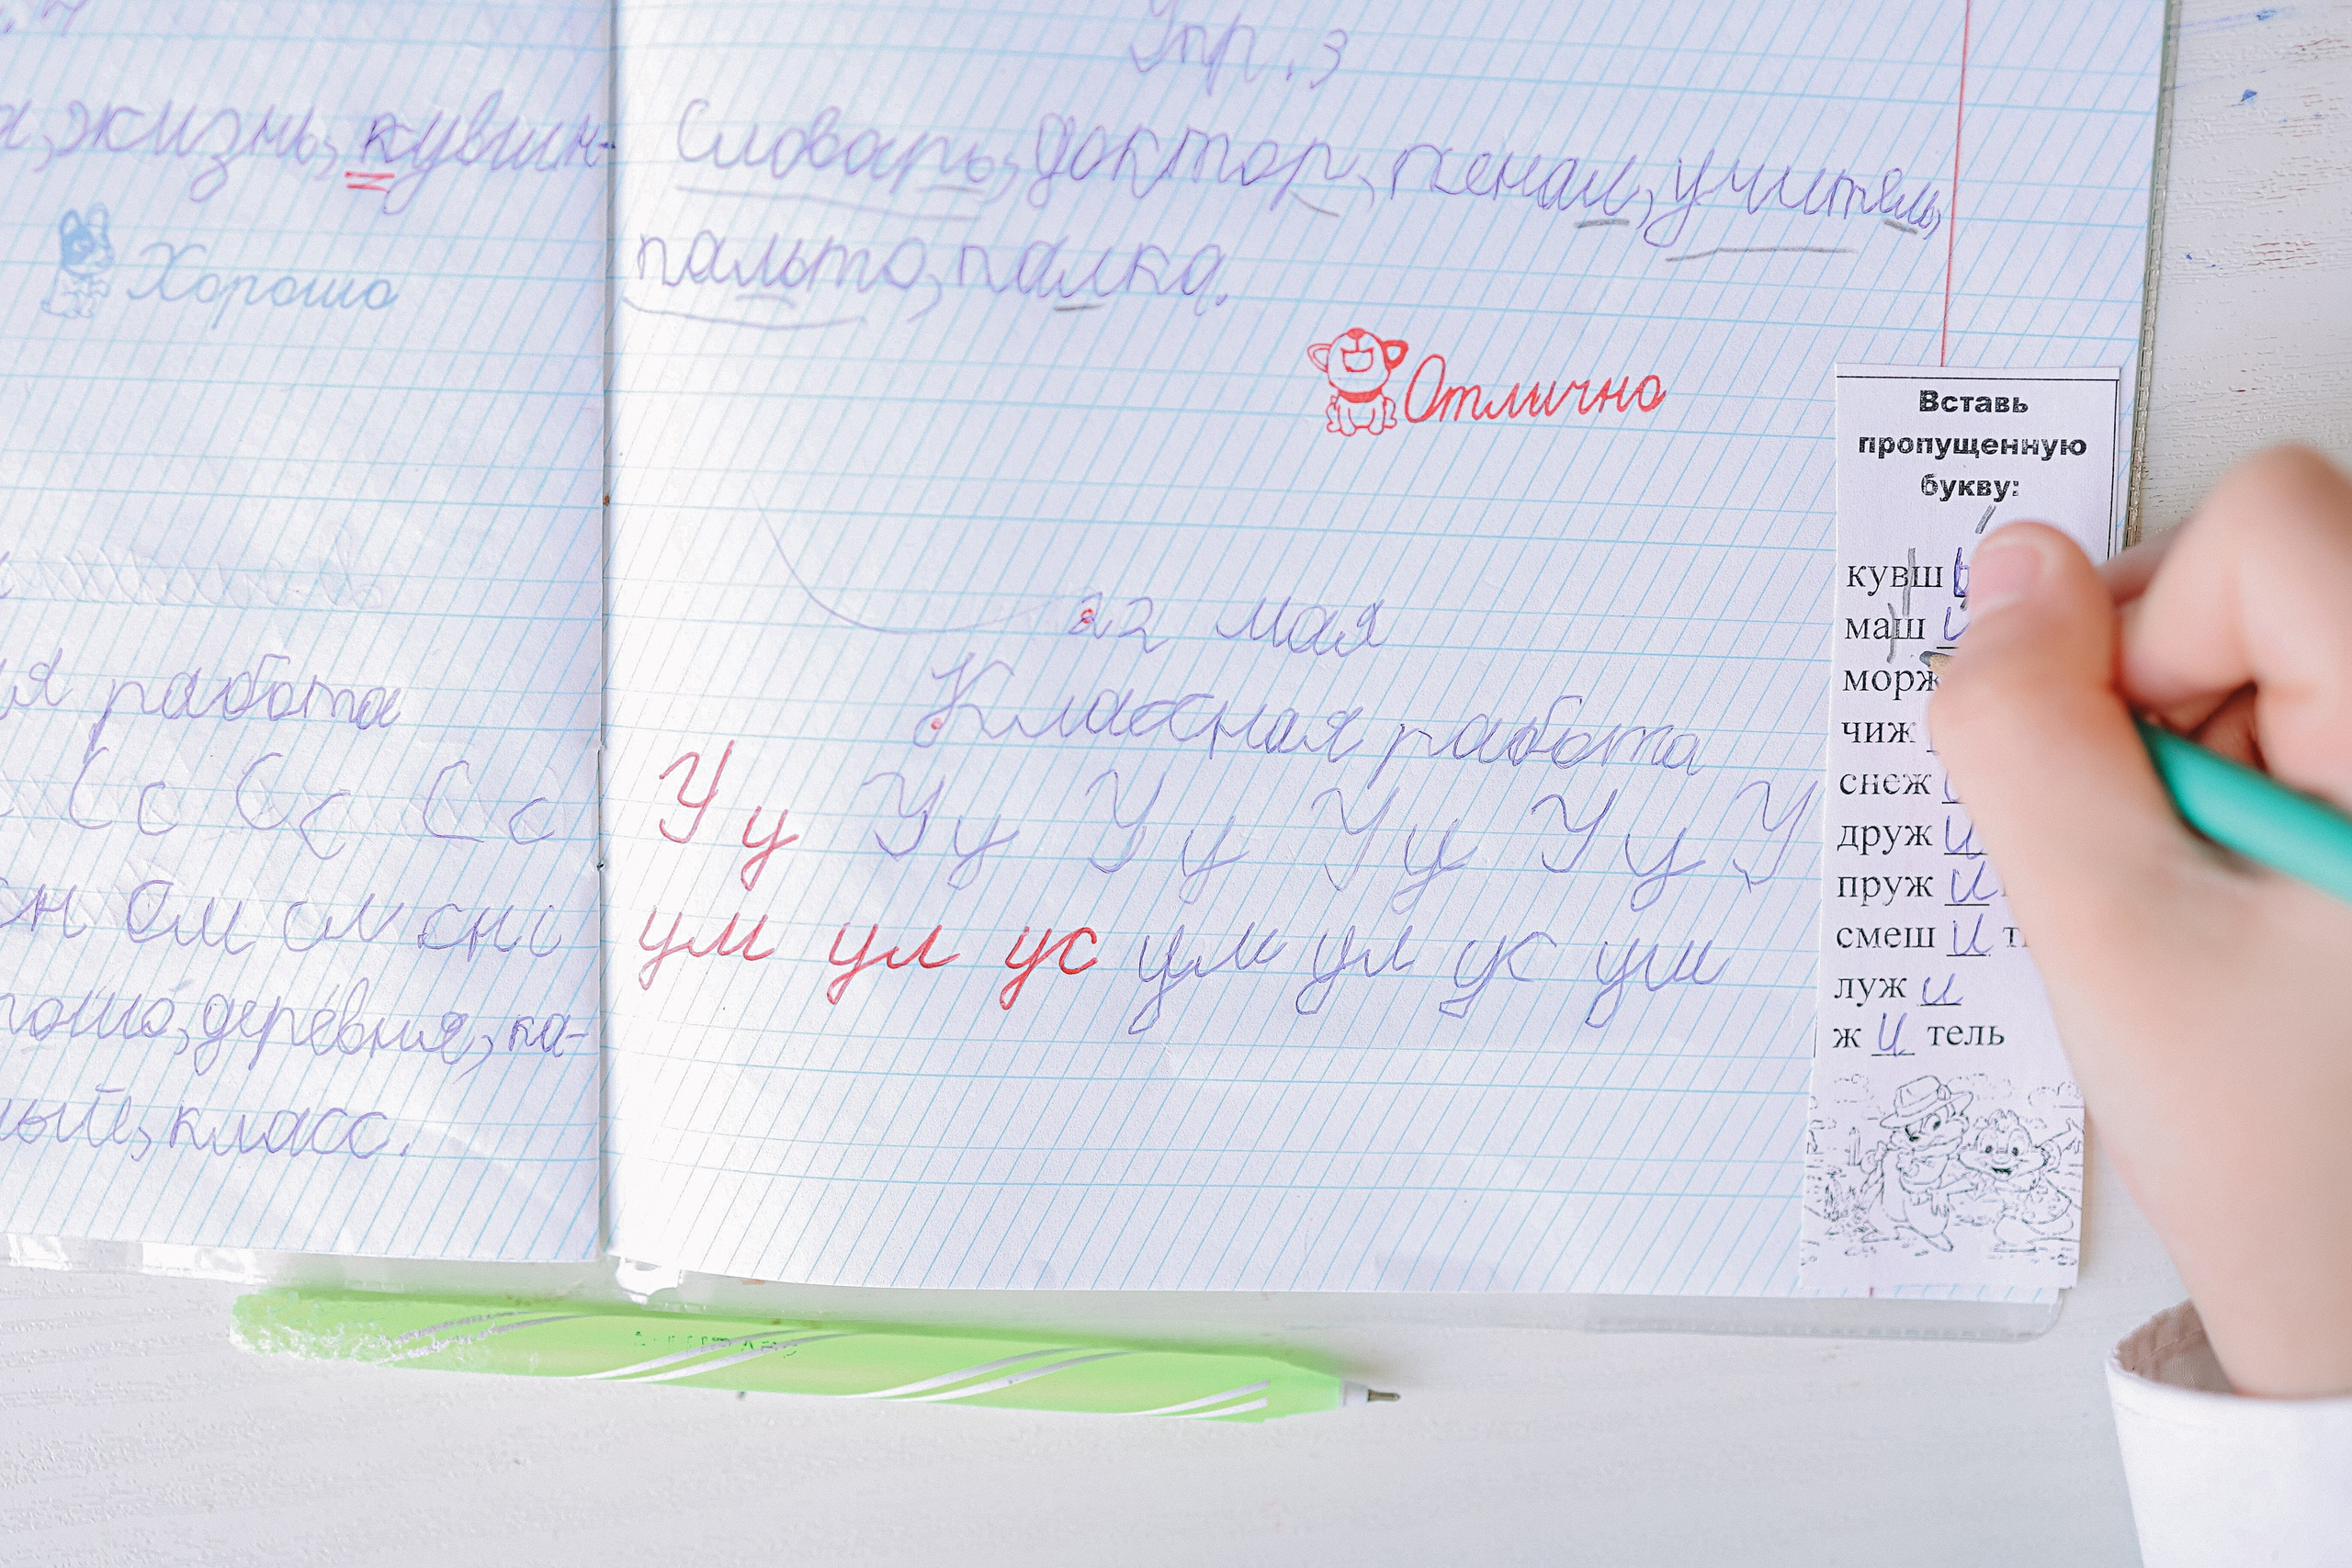 жизнь, кувшин-
Хорошо
работа
Сс Сс Сс
ом см
деревня, ка-
класс.
Упр. 3
Словарь, доктор, пенал, учитель,
пальто, палка.
Отлично
22 мая
Классная работа
У у У у У у У у У у У
ум ул ус ум ул ус уш
Вставь
пропущенную
букву:
кувш
маш и
морж
чиж
снеж
друж и
пруж и
смеш и
луж и
ж и тель